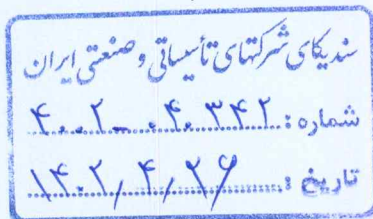 سندیکای شرکتهای تأسیساتی و صنعتی ایران
شماره: ۴۰۲-۰۴.۳۴۲
تاریخ: ۱۴۰۲/۴/۲۶